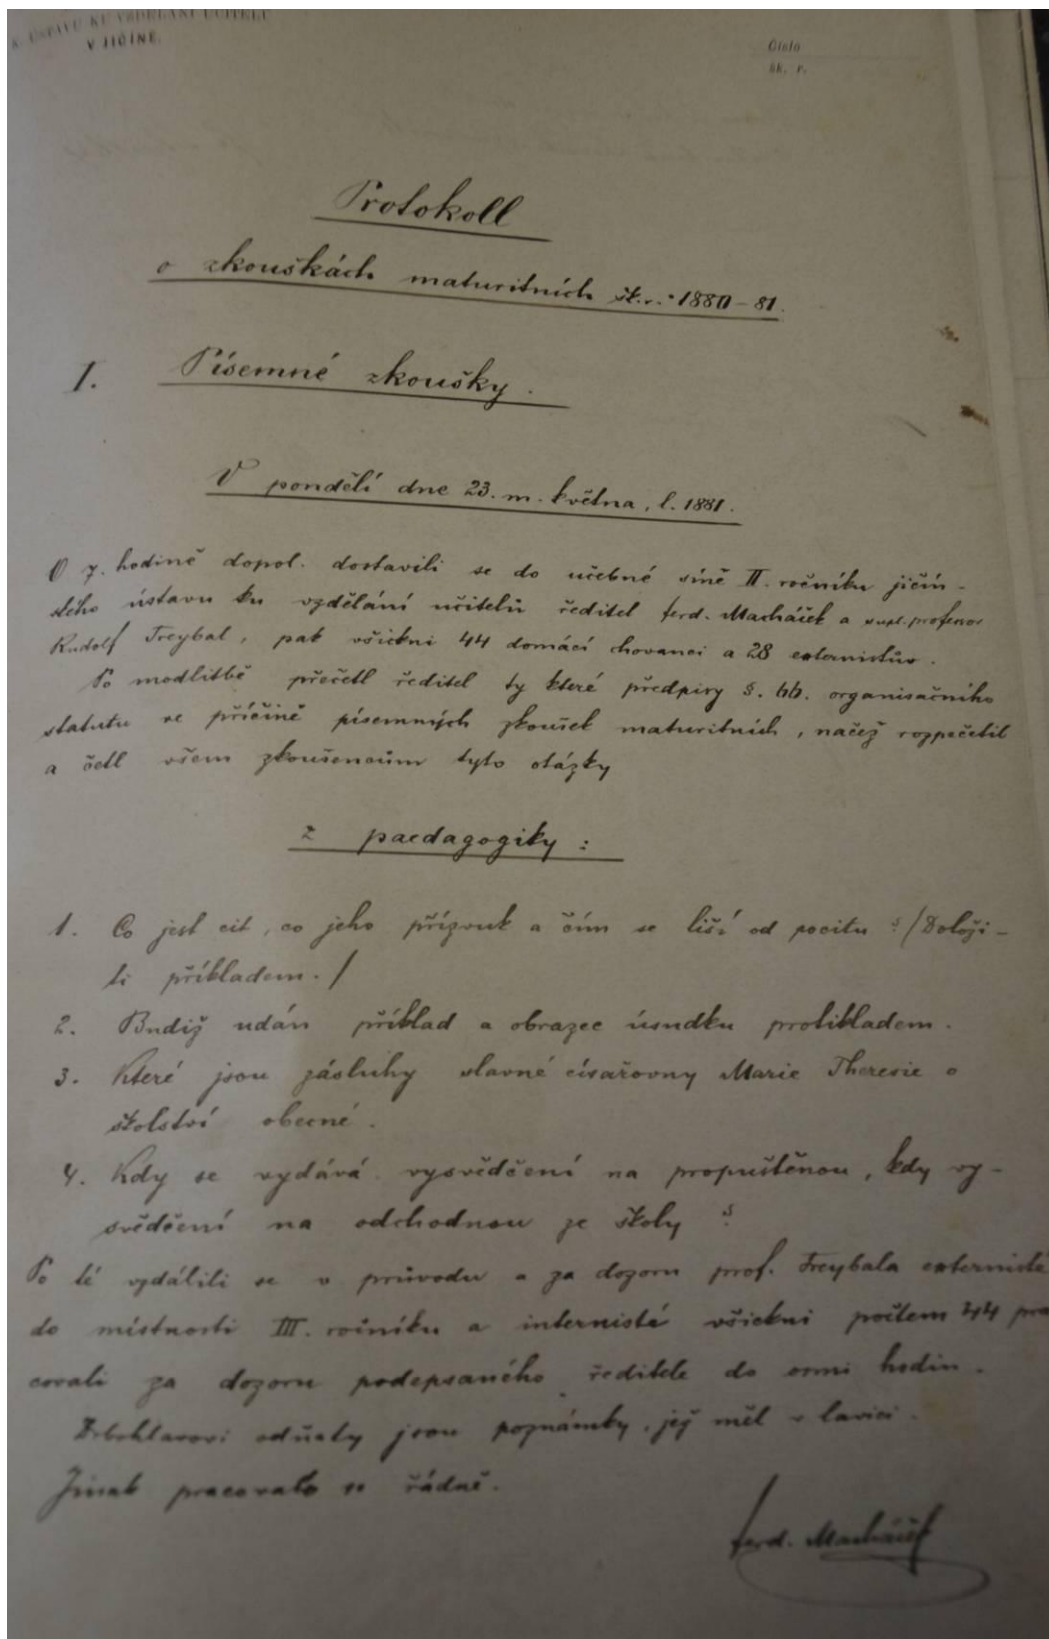 K. ÚSTAVU KU VZDĚLÁNÍ UČITELŮ
V JIČÍNĚ.
Číslo
šk. r.
Protokoll
o zkouškách maturitních šk. r. 1880–81.
I. Písemné zkoušky.
V pondělí dne 23. m. května, l. 1881.
O 7. hodině dopol. dostavili se do učebné síně II. ročníku jičín-
ského ústavu ku vzdělání učitelů ředitel Ferd. Macháček a supl. professor
Rudolf Treybal, pak všickni 44 domácí chovanci a 28 externistův.
Po modlitbě přečetl ředitel ty které předpisy §. 66. organisačního
statutu ve příčině písemných zkoušek maturitních, načež rozpečetil
a četl všem zkoušencům tyto otázky
z paedagogiky:
1. Co jest cit, co jeho přízvuk a čím se liší od pocitu? /Doloži-
ti příkladem./
2. Budiž udán příklad a obrazec úsudku protikladem.
3. Které jsou zásluhy slavné císařovny Marie Theresie o
školství obecné.
4. Kdy se vydává vysvědčení na propuštěnou, kdy vy-
svědčení na odchodnou ze školy?
Po té vzdálili se v průvodu a za dozoru prof. Treybala externisté
do místnosti III. ročníku a internisté všickni počtem 44 pra
covali za dozoru podepsaného ředitele do osmi hodin.
odňaty jsou poznámky, jež měl v lavici.
Jinak pracovalo se řádně.
Ferd. Macháček